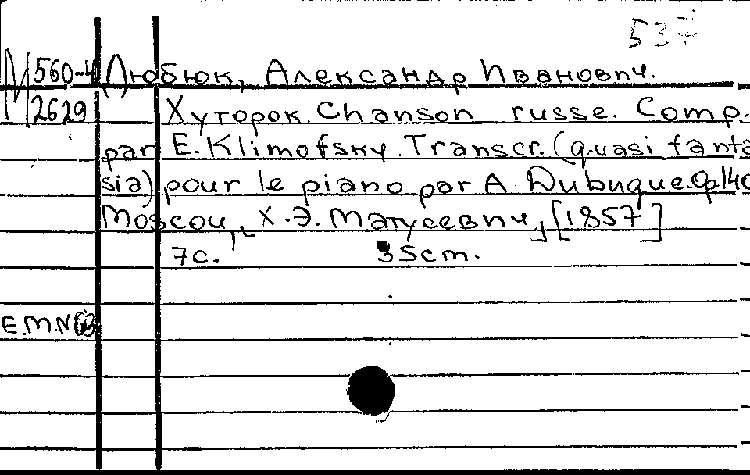 537
М 560-4 Дюбюк, Александр Иванович.
2629 Хуторок. Chanson russe. Comp.
par E. Klimofsky. Transcr. (quasi fanta
sia) pour le piano par A. Dubuque. Op.140
Moscou, Х.Э. Матусевич, [1857]
7с. 35cm.